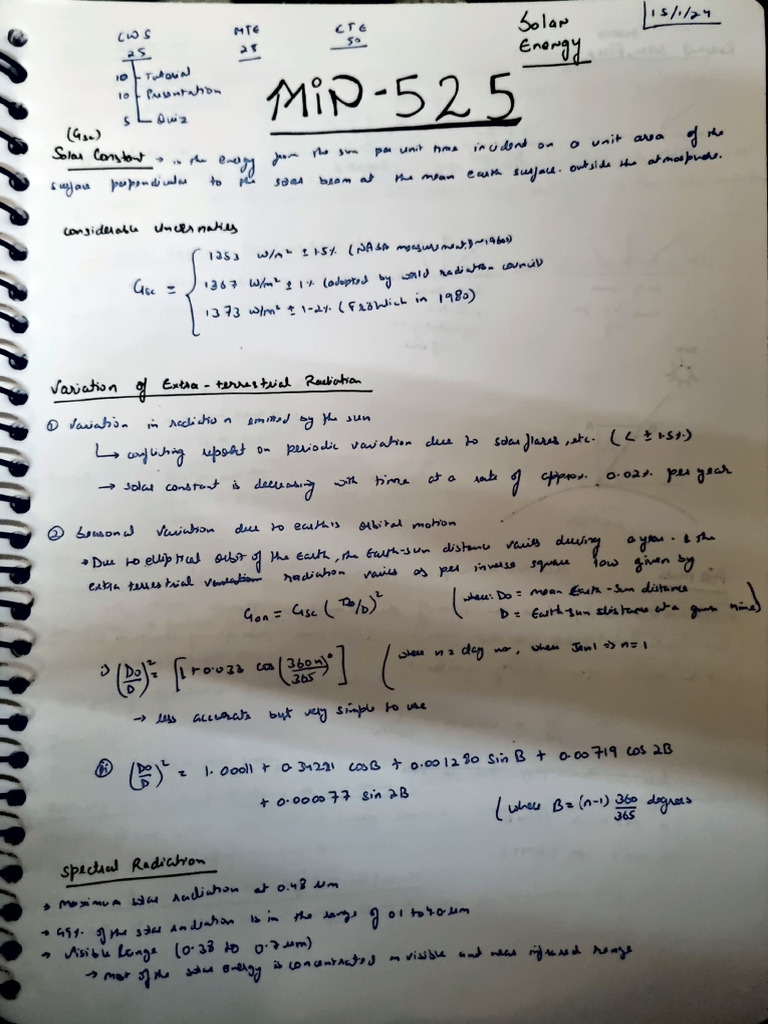 Solar Energy
15/1/24
CWS 25
MTE 25
CTE 50
10 - Tutorial
10 - Presentation
5 - Quiz
MIN-525
(Gsc)
Solar Constant → is the energy from the sun per unit time incident on a unit area of the
surface perpendicular to the solar beam at the mean earth surface. outside the atmosphere.
considerable
Gsc = { 1353 W/m² ± 1.5% (NASA measurement) ~1960s)
1367 W/m² ± 1% (adopted by world radiation council)
1373 W/m² ± 1-2% (Frohlich in 1980)
Variation of Extra-terrestrial Radiation
① Variation in radiation emitted by the sun
↳ conflicting report on periodic variation due to solar flares, etc. (< ± 1.5%)
→ solar constant is decreasing with time at a rate of approx. 0.02% per year
② Seasonal Variation due to earth's orbital motion
→ Due to elliptical orbit of the Earth, the Earth-sun distance varies during a year. & the
extra terrestrial radiation varies as per inverse square law given by
Gon = Gsc (Do/D)² (where: Do = mean Earth-Sun distance
D = Earth-sun distance at a given time)
i) (Do/D)² = [1 + 0.033 cos (360n/365)°] (where n = day no, where Jan 1 ⇒ n = 1
→ less accurate but very simple to use
ii) (Do/D)² = 1.00011 + 0.34221 cosB + 0.001280 sin B + 0.00719 cos 2B
+ 0.000077 sin 2B (where B = (n-1) 360/365 degrees
Spectral Radiation
→ Maximum solar radiation at 0.48 μm
→ 99% of the solar radiation is in the range of
→ Visible Range (0.38 to 0.7 μm)
→ most of the solar energy is concentrated in visible and near infrared range